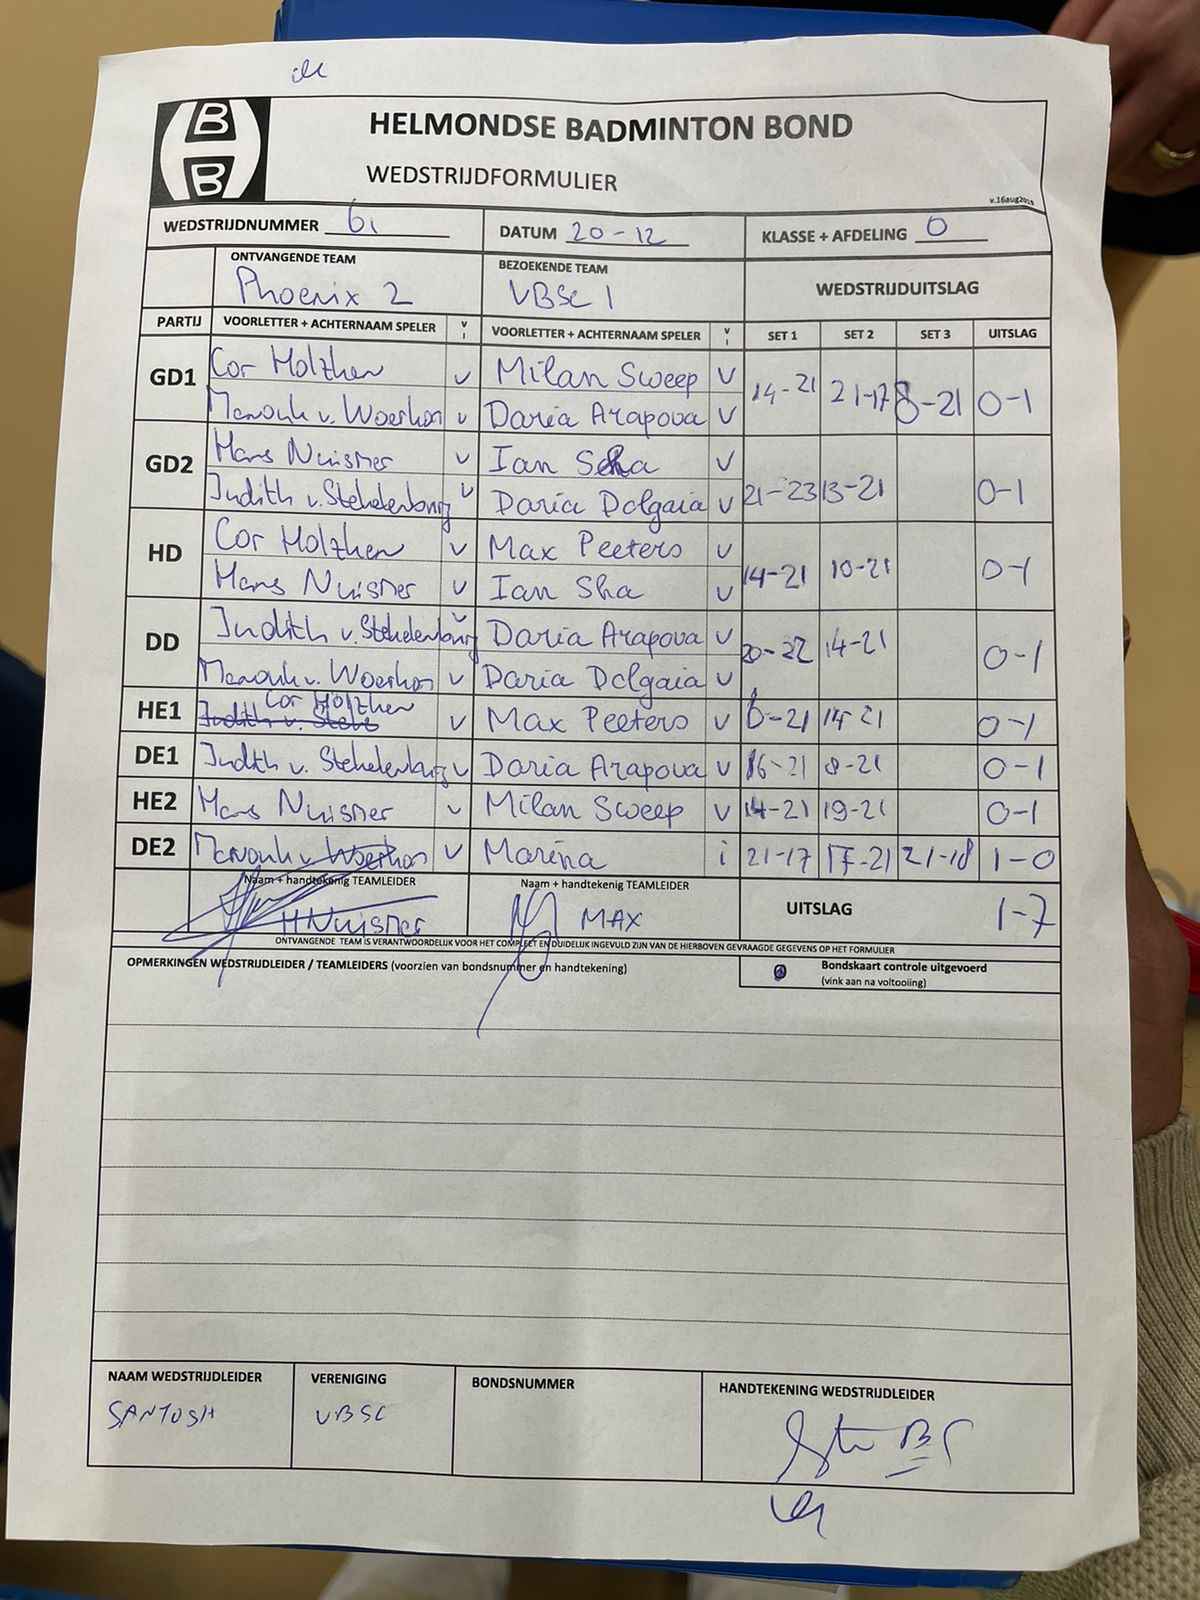 B
B
HELMONDSE BADMINTON BOND
WEDSTRIJDFORMULIER
v.16aug2019
WEDSTRIJDNUMMER DATUM 20-12 KLASSE + AFDELING 0
ONTVANGENDE TEAM BEZOEKENDE TEAM WEDSTRIJDUITSLAG
Phoenix 2 VBSC 1
PARTIJ VOORLETTER + ACHTERNAAM SPELER v i VOORLETTER + ACHTERNAAM SPELER v i SET 1 SET 2 SET 3 UITSLAG
GD1 Cor Holthen v Milan Sweep v 14-21 21-17 8-21 0-1
Manouk v. Woerkom v Daria Arapova v
GD2 Hans Nuismer v Ian Sha v 21-23 13-21 0-1
Judith v. Stekelenburg v Daria Dolgaia v
HD Cor Holthen v Max Peeters v 14-21 10-21 0-1
Hans Nuismer v Ian Sha v
DD Judith v. Stekelenburg v Daria Arapova v 20-22 14-21 0-1
Manouk v. Woerkom v Daria Dolgaia v
HE1 Cor Holthen v Max Peeters v 14-21 0-1
Judith v. Steke
DE1 Judith v. Stekelenburg v Daria Arapova v 16-21 8-21 0-1
HE2 Hans Nuismer v Milan Sweep v 14-21 19-21 0-1
DE2 Manouk v Woerkom v Marina i 21-17 17-21 21-18 1-0
Naam + handtekenig TEAMLEIDER Naam + handtekenig TEAMLEIDER UITSLAG 1-7
HNuismer MAX
ONTVANGENDE TEAM IS VERANTWOORDELIJK VOOR HET COMPLEET EN DUIDELIJK INGEVULD ZIJN VAN DE HIERBOVEN GEVRAAGDE GEGEVENS OP HET FORMULIER
OPMERKINGEN WEDSTRIJDLEIDER / TEAMLEIDERS (voorzien van bondsnummer en handtekening) Bondskaart controle uitgevoerd
(vink aan na voltooiing)
NAAM WEDSTRIJDLEIDER VERENIGING BONDSNUMMER HANDTEKENING WEDSTRIJDLEIDER
SANTOSH VBSC